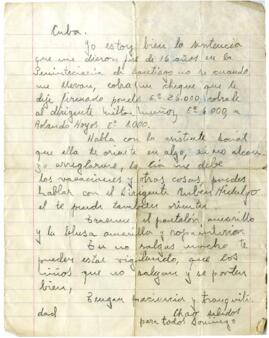 Cuba.
Yo estoy bien la sentencia
que me dieron fue de 16 años en la
Penitenciaria de Santiago no se cuando
me llevan, cobra un cheque que te
deje firmado por Eº 26.000, cobrale
al dirigente Milton Muñoz Eº 6.000 a
Rolando Hoyos Eº 1.000.
Habla con la asistente social
que ella te oriente en algo, si no alcan
zo arreglarme, la Cia me debe
las vacaciones y otras cosas, puedes
hablar con el Dirigente Ruben Hidalgo
el te puede tambien orientar
Traeme el pantalón amarillo
y la blusa amarilla y ropa interior.
Tu no salgas mucho te
pueden estar vigilando, que los
niños que no salgan y se porten
bien,
Tengan paciencia y tranquili
dad
Chao saludos
para todos Domingo